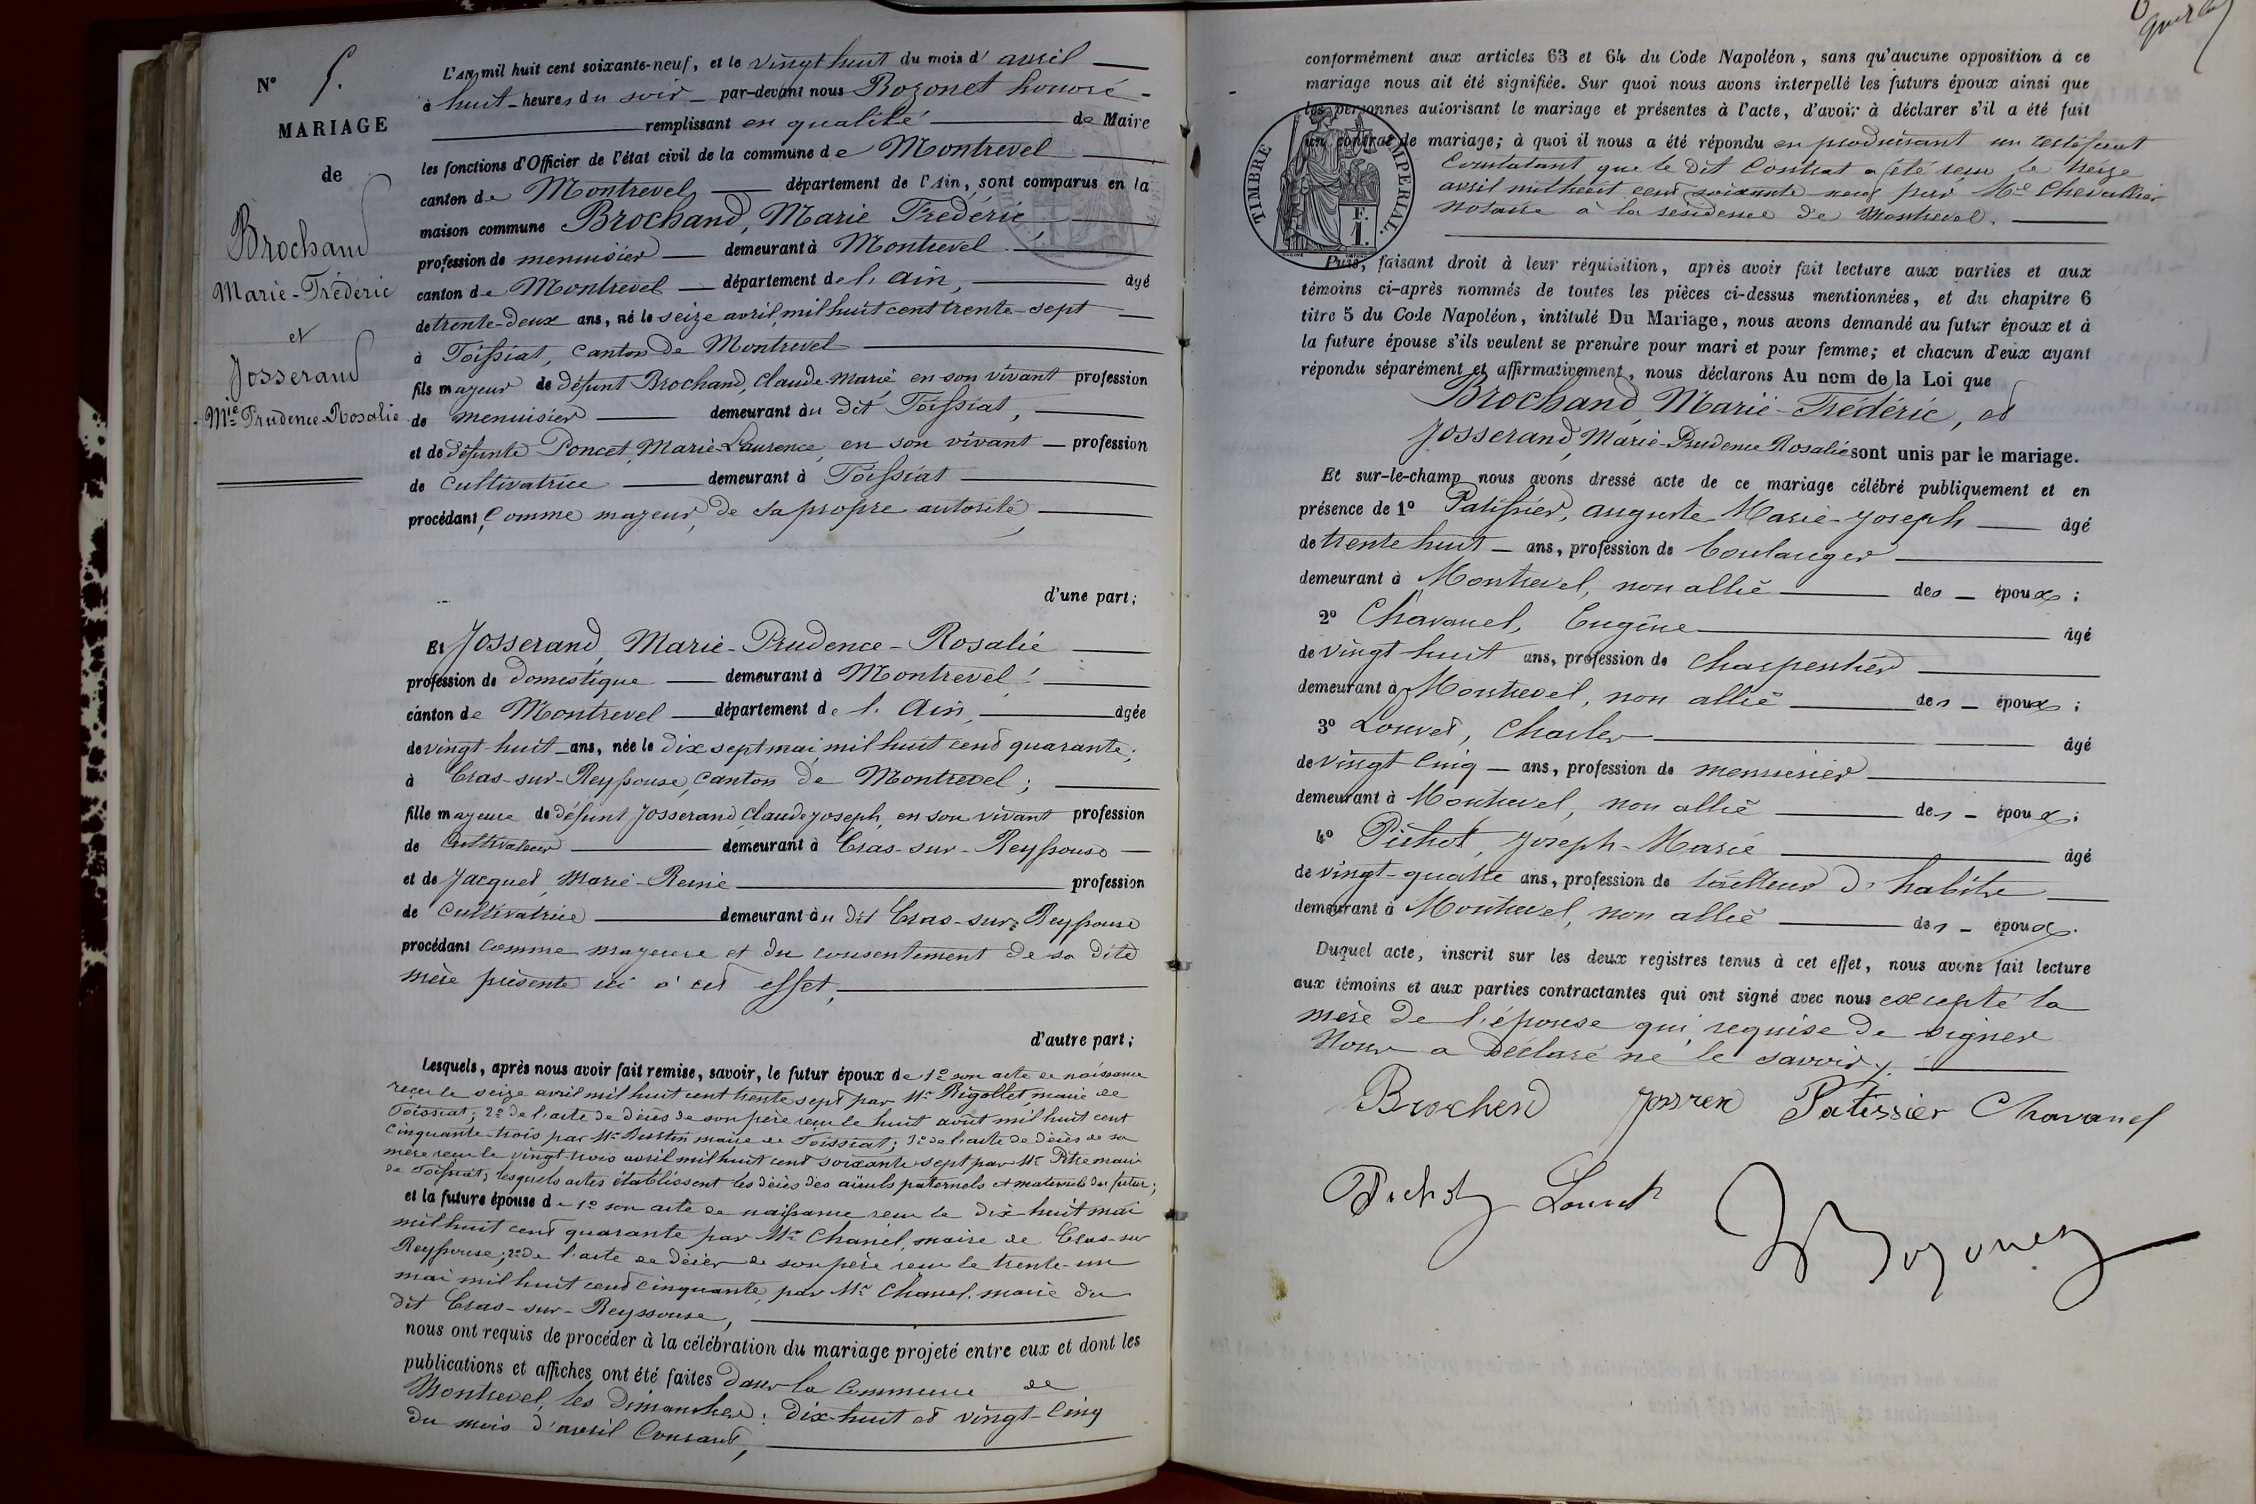 N° 5.
MARIAGE
de
Brochand
Marie-Frédéric
et
Josserand
Mie Prudence-Rosalie
L'An mil huit cent soixante-neuf, et le vingt huit du mois d' avril
à huit heures du soir par-devant nous Bozonet honoré
remplissant en qualité de Maire
les fonctions d'Officier de l'état civil de la commune de Montrevel
canton de Montrevel département de l'Ain, sont comparus en la
maison commune Brochand, Marie Frédéric,
profession de menuisier demeurant à Montrevel
canton de Montrevel département de l'Ain, âgé
de trente-deux ans, né le seize avril mil huit cent trente-sept
à Foissiat, canton de Montrevel
fils majeur de défunt Brochand, Claude-Marie, en son vivant profession
de menuisier demeurant au dit Foissiat,
et de défunte Poncet, Marie-Laurence, en son vivant profession
de cultivatrice demeurant à Foissiat
procédant comme majeur, de sa propre autorité,
d'une part;
Et Josserand, Marie-Prudence-Rosalie
profession de domestique demeurant à Montrevel
canton de Montrevel département de l'Ain, âgée
de vingt-huit ans, née le dix sept mai mil huit cent quarante;
à Cras-sur-Reyssouse, canton de Montrevel;
fille majeure de défunt Josserand, Claude joseph, en son vivant profession
de cultivateur demeurant à Cras-sur-Reyssouse
et de Jacquet, Marie-Reine profession
de cultivatrice demeurant au dit Cras-sur-Reyssouse
procédant comme majeure et du consentement de sa dite
mère présente ici à cet effet,
d'autre part;
Lesquels, après nous avoir fait remise, savoir, le futur époux de 1° son acte de naissance
reçu le seize avril mil huit cent trente sept par Mr Rigollet, maire de
Foissiat; 2° de l'acte de décès de son père reçu le huit août mil huit cent
cinquante-trois par Mr Bustin maire de Foissiat; 3° de l'acte de décès de sa
mère reçu le vingt-trois avril mil huit cent soixante sept par Mr Pitre maire
de Foissiat; lesquels actes établissent les décès des aïeuls paternels et maternels du futur;
et la future épouse de 1° son acte de naissance reçu le dix-huit mai
mil huit cent quarante par Mr Chanel, maire de Cras-sur
Reyssouse; 2° de l'acte de décès de son père reçu le trente-un
mai mil huit cent cinquante, par Mr Chanel, maire du
dit Cras-sur-Reyssouse,
nous ont requis de procéder à la célébration du mariage projeté entre eux et dont les
publications et affiches ont été faites dans la commune de
Montrevel, les dimanches: dix-huit et vingt-cinq
du mois d'avril courant,
conformément aux articles 63 et 64 du Code Napoléon, sans qu'aucune opposition à ce
mariage nous ait été signifiée. Sur quoi nous avons interpellé les futurs époux ainsi que
les personnes autorisant le mariage et présentes à l'acte, d'avoir à déclarer s'il a été fait
un contrat de mariage; à quoi il nous a été répondu en produisant un certificat
constatant que le dit contrat a été reçu le treize
avril mil huit cent soixante-neuf par Me Chevallier
notaire à la résidence de Montrevel.
TIMBRE IMPÉRIAL.
F.
1.
Puis, faisant droit à leur réquisition, après avoir fait lecture aux parties et aux
témoins ci-après nommés de toutes les pièces ci-dessus mentionnées, et du chapitre 6
titre 5 du Code Napoléon, intitulé Du Mariage, nous avons demandé au futur époux et à
la future épouse s'ils veulent se prendre pour mari et pour femme; et chacun d'eux ayant
répondu séparément et affirmativement, nous déclarons Au nom de la Loi que
Brochand, Marie-Frédéric, et
Josserand, Marie-Prudence Rosalie sont unis par le mariage.
Et sur-le-champ nous avons dressé acte de ce mariage célébré publiquement et en
présence de 1° Patissier, auguste Marie-joseph âgé
de trente huit ans, profession de boulanger
demeurant à Montrevel, non allié des époux;
2° Chavanel, Eugène âgé
de vingt huit ans, profession de charpentier
demeurant à Montrevel, non allié des époux;
3° Louvet, Charles âgé
de vingt cinq ans, profession de menuisier
demeurant à Montrevel, non allié des époux;
4° Pichot, Joseph-Marie âgé
de vingt-quatre ans, profession de tailleur d'habits
demeurant à Montrevel, non allié des époux.
Duquel acte, inscrit sur les deux registres tenus à cet effet, nous avons fait lecture
aux témoins et aux parties contractantes qui ont signé avec nous excepté la
mère de l'épouse qui, requise de signer
nous a déclaré ne le savoir.
Brochend Josren Patissier Chavanel
Pichot Louvet Bozonet